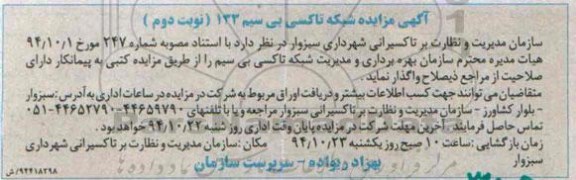 آگهی مزایده شبکه تاکسی بی سیم ۱۳۳ ( نوبت دوم )
سازمان مدیریت و نظارت بر تاکسیرانی شهرداری سبزوار در نظر دارد با استناد مصوبه شماره ۲۴۷ مورخ ۹۴/۱۰/۱
هیات مدیره محترم سازمان بهره برداری و مدیریت شبکه تاکسی بی سیم را از طریق مزایده کتبی به پیمانکار دارای
صلاحیت از مراجع ذیصلاح واگذار نماید .
متقاضیان می توانند جهت کسب اطلاعات بیشتر و دریافت اوراق مربوط به شرکت در مزایده در ساعات اداری به آدرس : سبزوار
- بلوار کشاورز - سازمان مدیریت و نظارت بر تاکسیرانی سبزوار مراجعه و یا با تلفنهای ۴۴۶۵۹۷۹۰-۴۴۶۵۲۷۹۰-۰۵۱
تماس حاصل فرمایند . آخرین مهلت شرکت در مزایده پایان وقت اداری روز شنبه ۹۴/۱۰/۲۲ خواهد بود .
زمان بازگشایی : ساعت ۱۰ صبح روز یکشنبه ۹۴/۱۰/۲۳ مکان : سازمان مدیریت و نظارت بر تاکسیرانی شهرداری
سبزوار
بهزاد ریواده - سرپرست سازمان
۹۴۴۱۸۲۹۸/ش